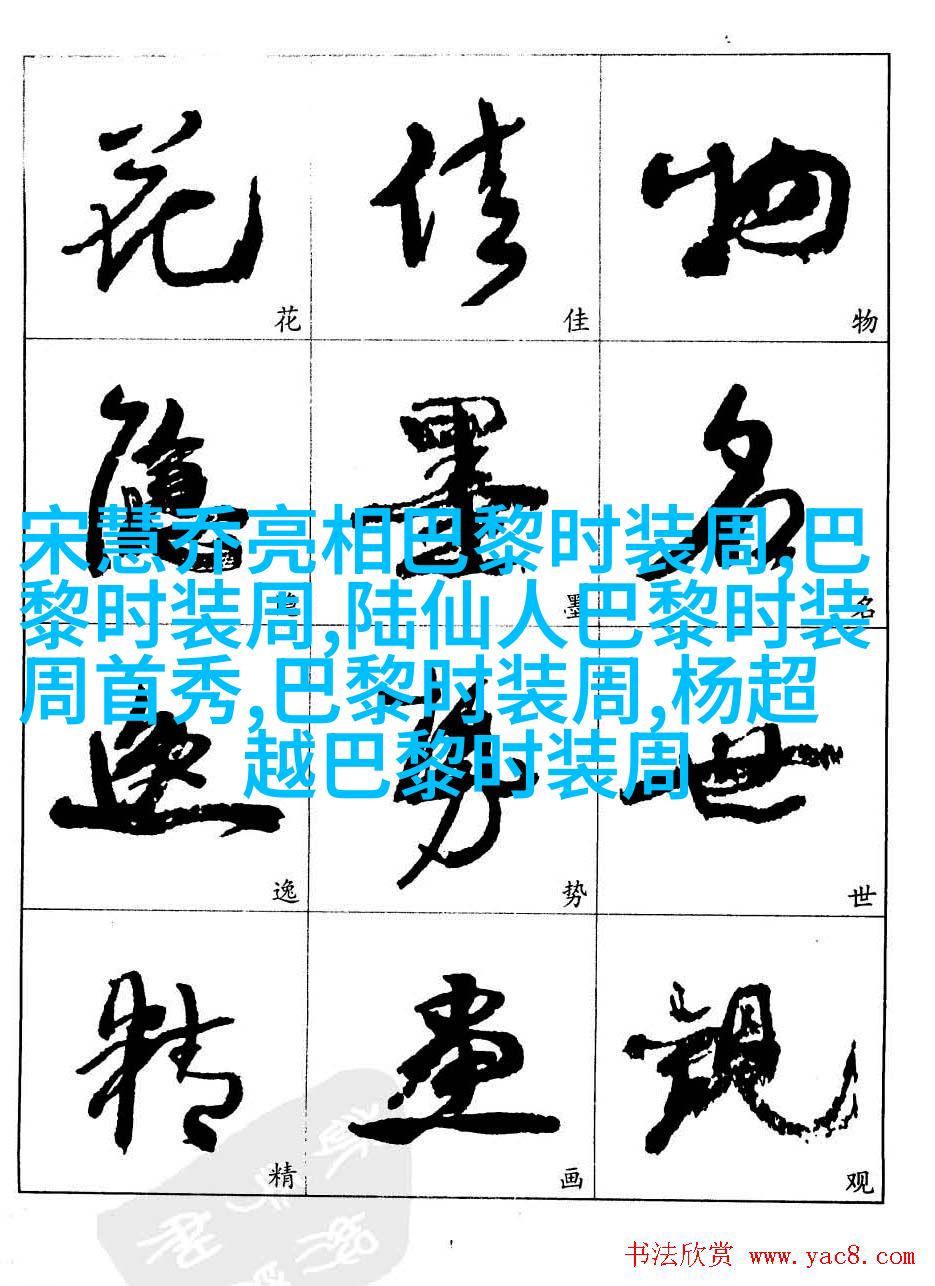 花 佳 物
花 佳 物
隐 墨 名
宋慧乔亮相巴黎时装周,巴
黎时装周,陆仙人巴黎时装
周首秀,巴黎时装周,杨超
越巴黎时装周
墨 名
逸 势 世
逸 势 世
精 画 观
精 画 观
书法欣赏 www.yac8.com